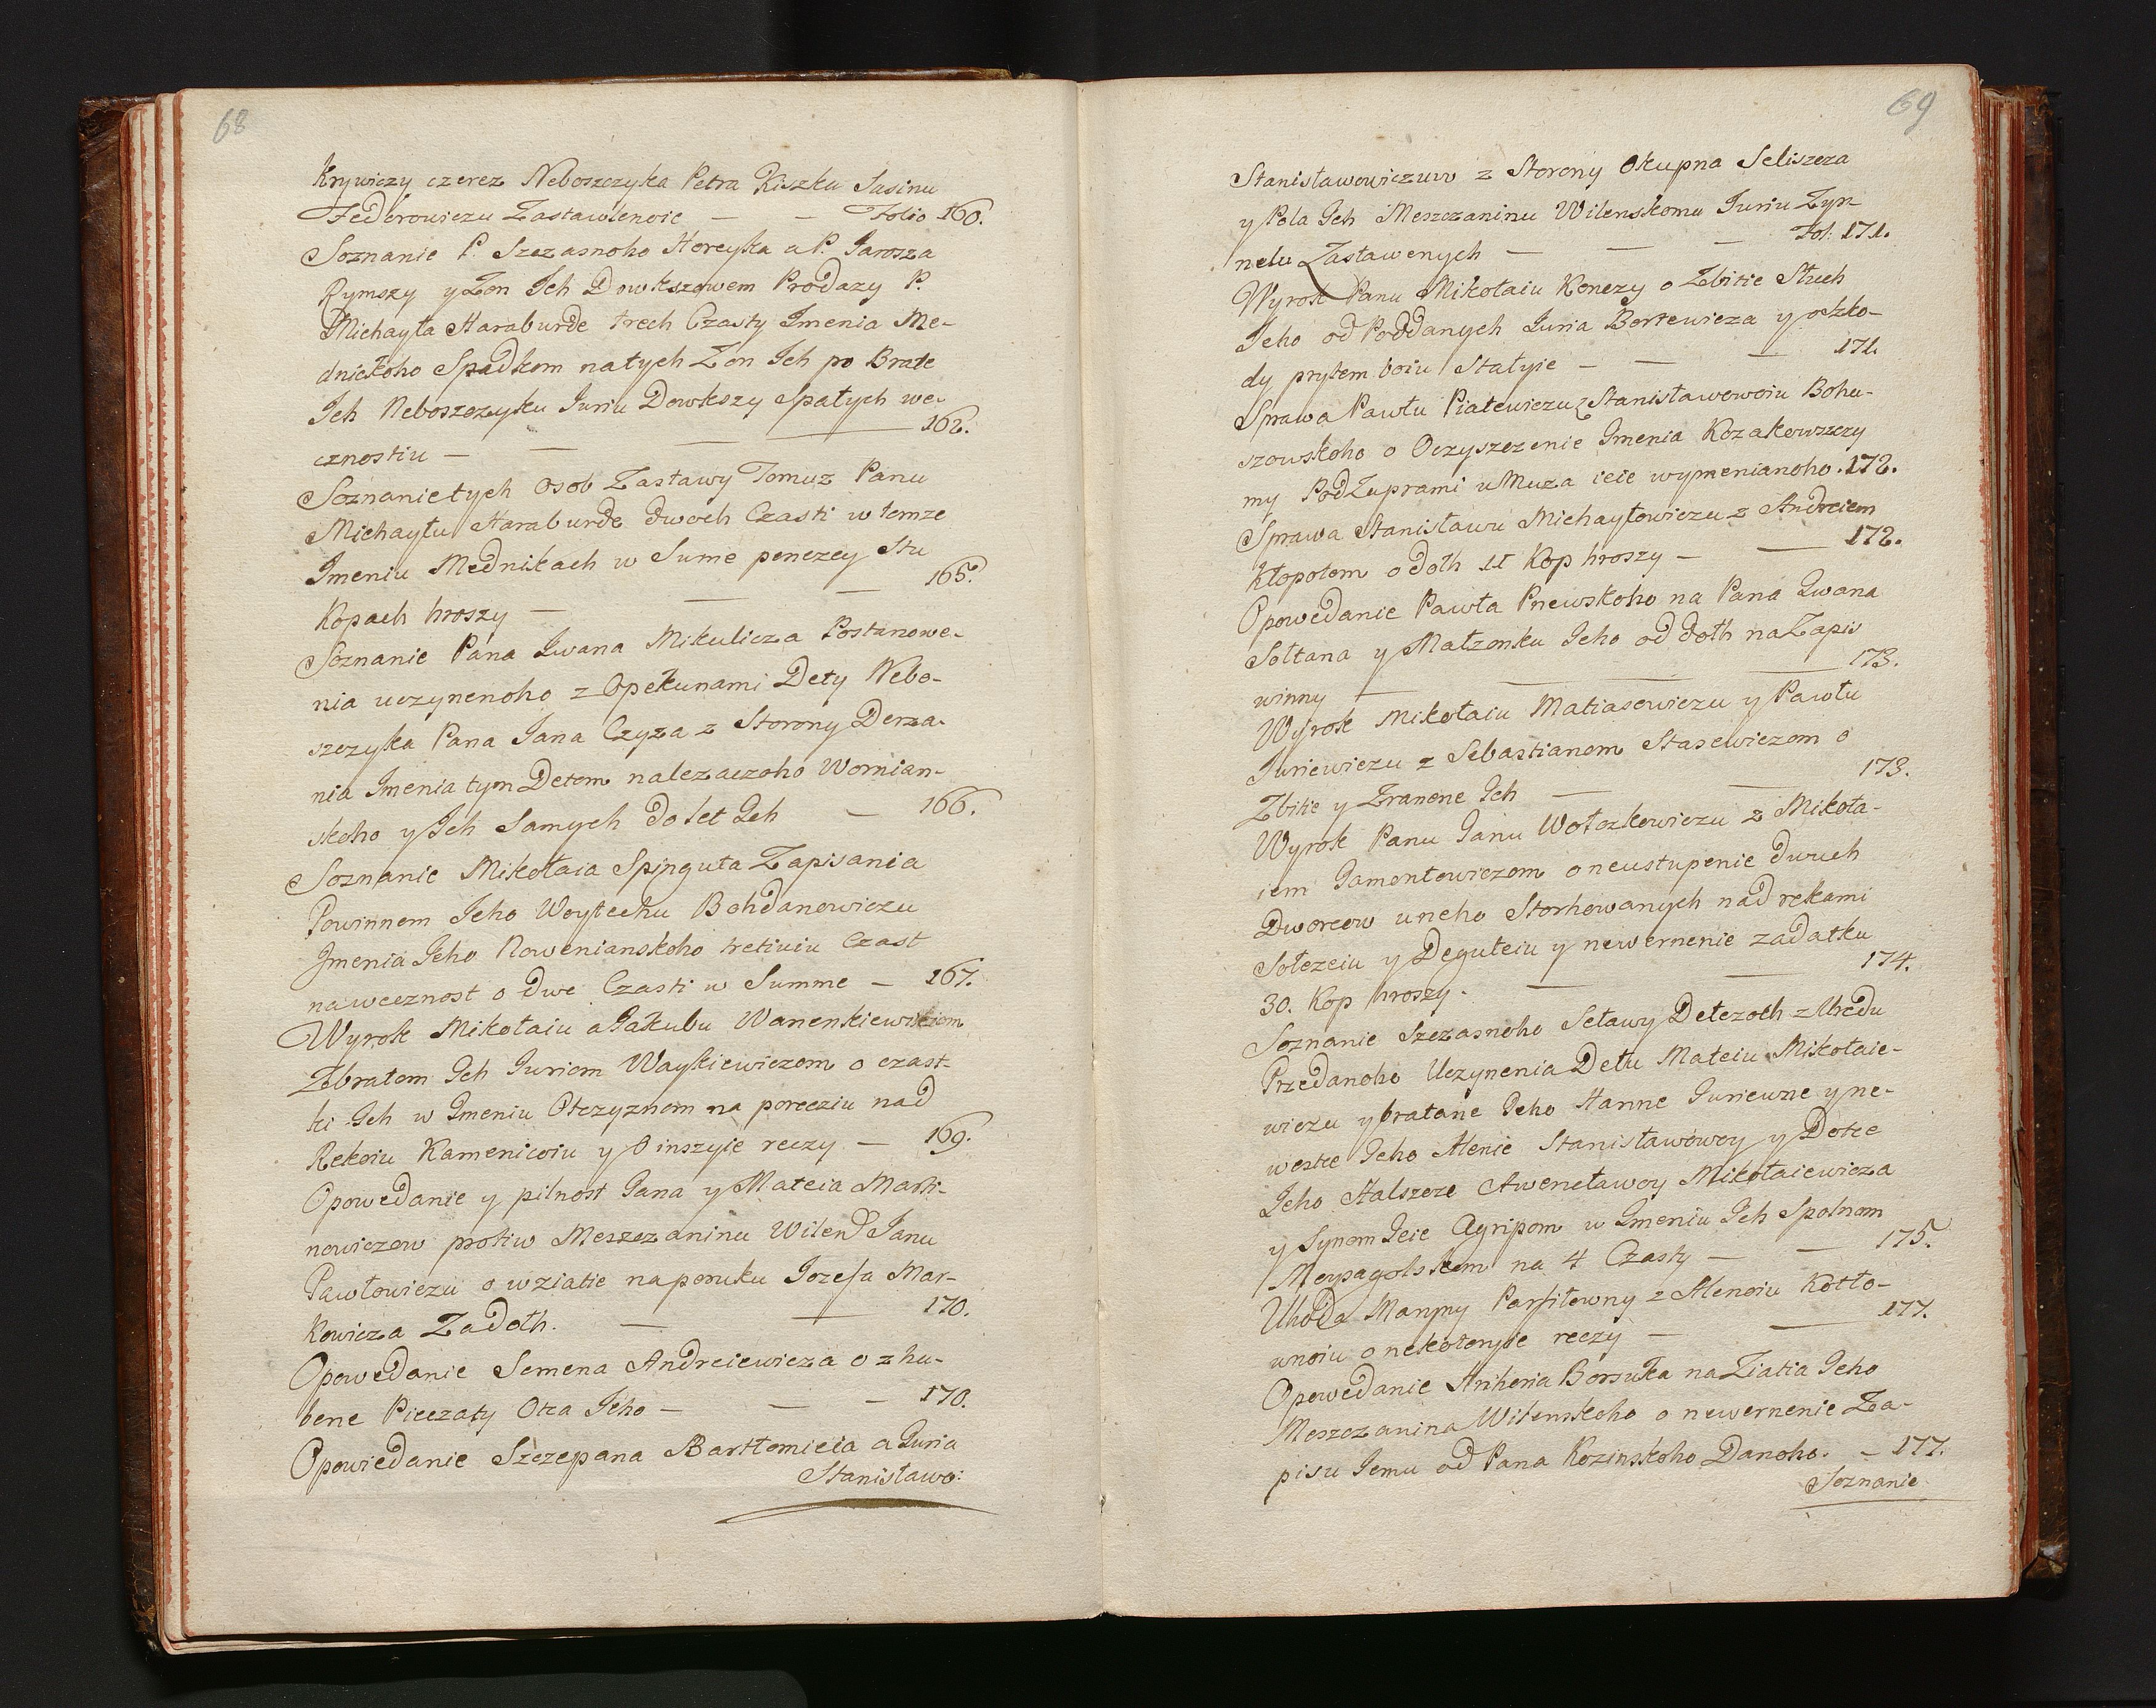 68
Krywiczy czerez Neboszczyka Petra Kiszku Sasinu
Federowiczu Zastawlenoie — — Folio 160.
Soznanie P. Szczasnoho Horcyka a P. Jarosza
Rymszy y Zon Ich Dowkszowem Prodazy P.
Michayła Haraburde trech Czasty Imenia Me-
dnickoho Spadkom na tych Zon Ich po Brate
Ich Neboszczyku Juriu Dowkszy Spałych we-
cznostiu — — — 162.
Soznanie tych osob Zastawy Tomuz Panu
Michayłu Haraburde dwoch Czasti w temze
Imeniu Mednikach w Sume penezey Stu
Kopach hroszy — — — 165.
Soznanie Pana Iwana Mikulicza Postanowe-
nia uczynenoho z Opekunami Dety Nebo-
szczyka Pana Jana Czyza z Storony Derza-
nia Imenia tym Detem nalezaczoho Wornian-
skoho y Ich Samych do let Ich — 166.
Soznanie Mikołaia Spinguta Zapisania
Powinnem Jeho Woytechu Bohdanowiczu
Imenia Jeho Noweniansko­ho tretiuiu Czast
na wecznost o dwe Czasti w Summe — 167.
Wyrok Mikołaiu a Jakubu Wanenkiewiczom
Zbratom Ich Juriem Waykiewiczom o czast-
ki Ich w Imeniu Otczyznom na poreczu nad
Rekoiu Kamenicoiu y O inszyie reczy — 169.
Opowedanie y pilnost Jana y Mateia Marti-
nowiczow protiw Meszczaninu Wilend Janu
Pawłowiczu o wziatie na poruku Jozefa Mar-
kowicza Zadołh. — — 170.
Opowedanie Semena Andreiewicza o zhu-
bene Pieczaty Otca Jeho — — — 170.
Opowiedanie Szczepana Bartłomieia a Juria
Stanisławo:
69
Stanisławowiczuw z Storony Okupna Seliszcza
y Pola Ich Meszczaninu Wilenskomu Juriu Zyn-
nelu Zastawenych — — — Fol: 171.
Wyrok Panu Mikołaiu Konczy o Zbitie Słuch
Jeho od Poddanych Juria Bortewicza y oszko-
dy prytem boiu Stałyie — — 171.
Sprawa Pawłu Piatewiczu z Stanisławowoiu Bohu-
szowskoho o Oczyszczenie Imenia Kozakowszczy
my Pod Zuprami u Muza ieie wymenianoho. 172.
Sprawa Stanisławu Michayłowiczu z Andreiem
Kłopotom o dołh 11 Kop hroszy — — 172.
Opowedanie Pawła Pnewskoho na Pana Iwana
Sołtana y Małzonku Jeho od dołh na Zapis
winny — — — 173.
Wyrok Mikołaiu Matiasewiczu y Pawłu
Juriewiczu z Sebastianom Stasewiczom o
Zbitie y Zranene Ich — — 173.
Wyrok Panu Janu Wołczkowiczu z Mikoła-
iem Jamontowiczom o neustupenie dwuch
Dworcow u neho Storhowanych nad rekami
Sołczeiu y Deguteiu y newernenie zadatku
30. Kop hroszy. — — 174.
Soznanie Szczasnoho Seławy Detczoth z Uredu
Przedanoho Uczynenia Dełu Mateiu Mikołaie-
wiczu y bratane Jeho Hanne Juriewne y ne-
westce Jeho Alenie Stanisławowoy y Dotce
Jeho Halszcze Awenetawoy Mikołaiewicza
y Synom Ieie Agripom w Imeniu Ich Spolnom
Meyszagolskom na 4 Czasty — — 175.
Uhoda Maryny Parfitowny z Alenoiu Kotło-
wnoiu o nekotoryie reczy — — 177.
Opowedanie Anhenia Borsuka na Ziatia Jeho
Meszczanina Wilenskoho o newernenie Za-
pisu Jemu od Pana Kozinskoho Danoho. — 177.
Soznanie